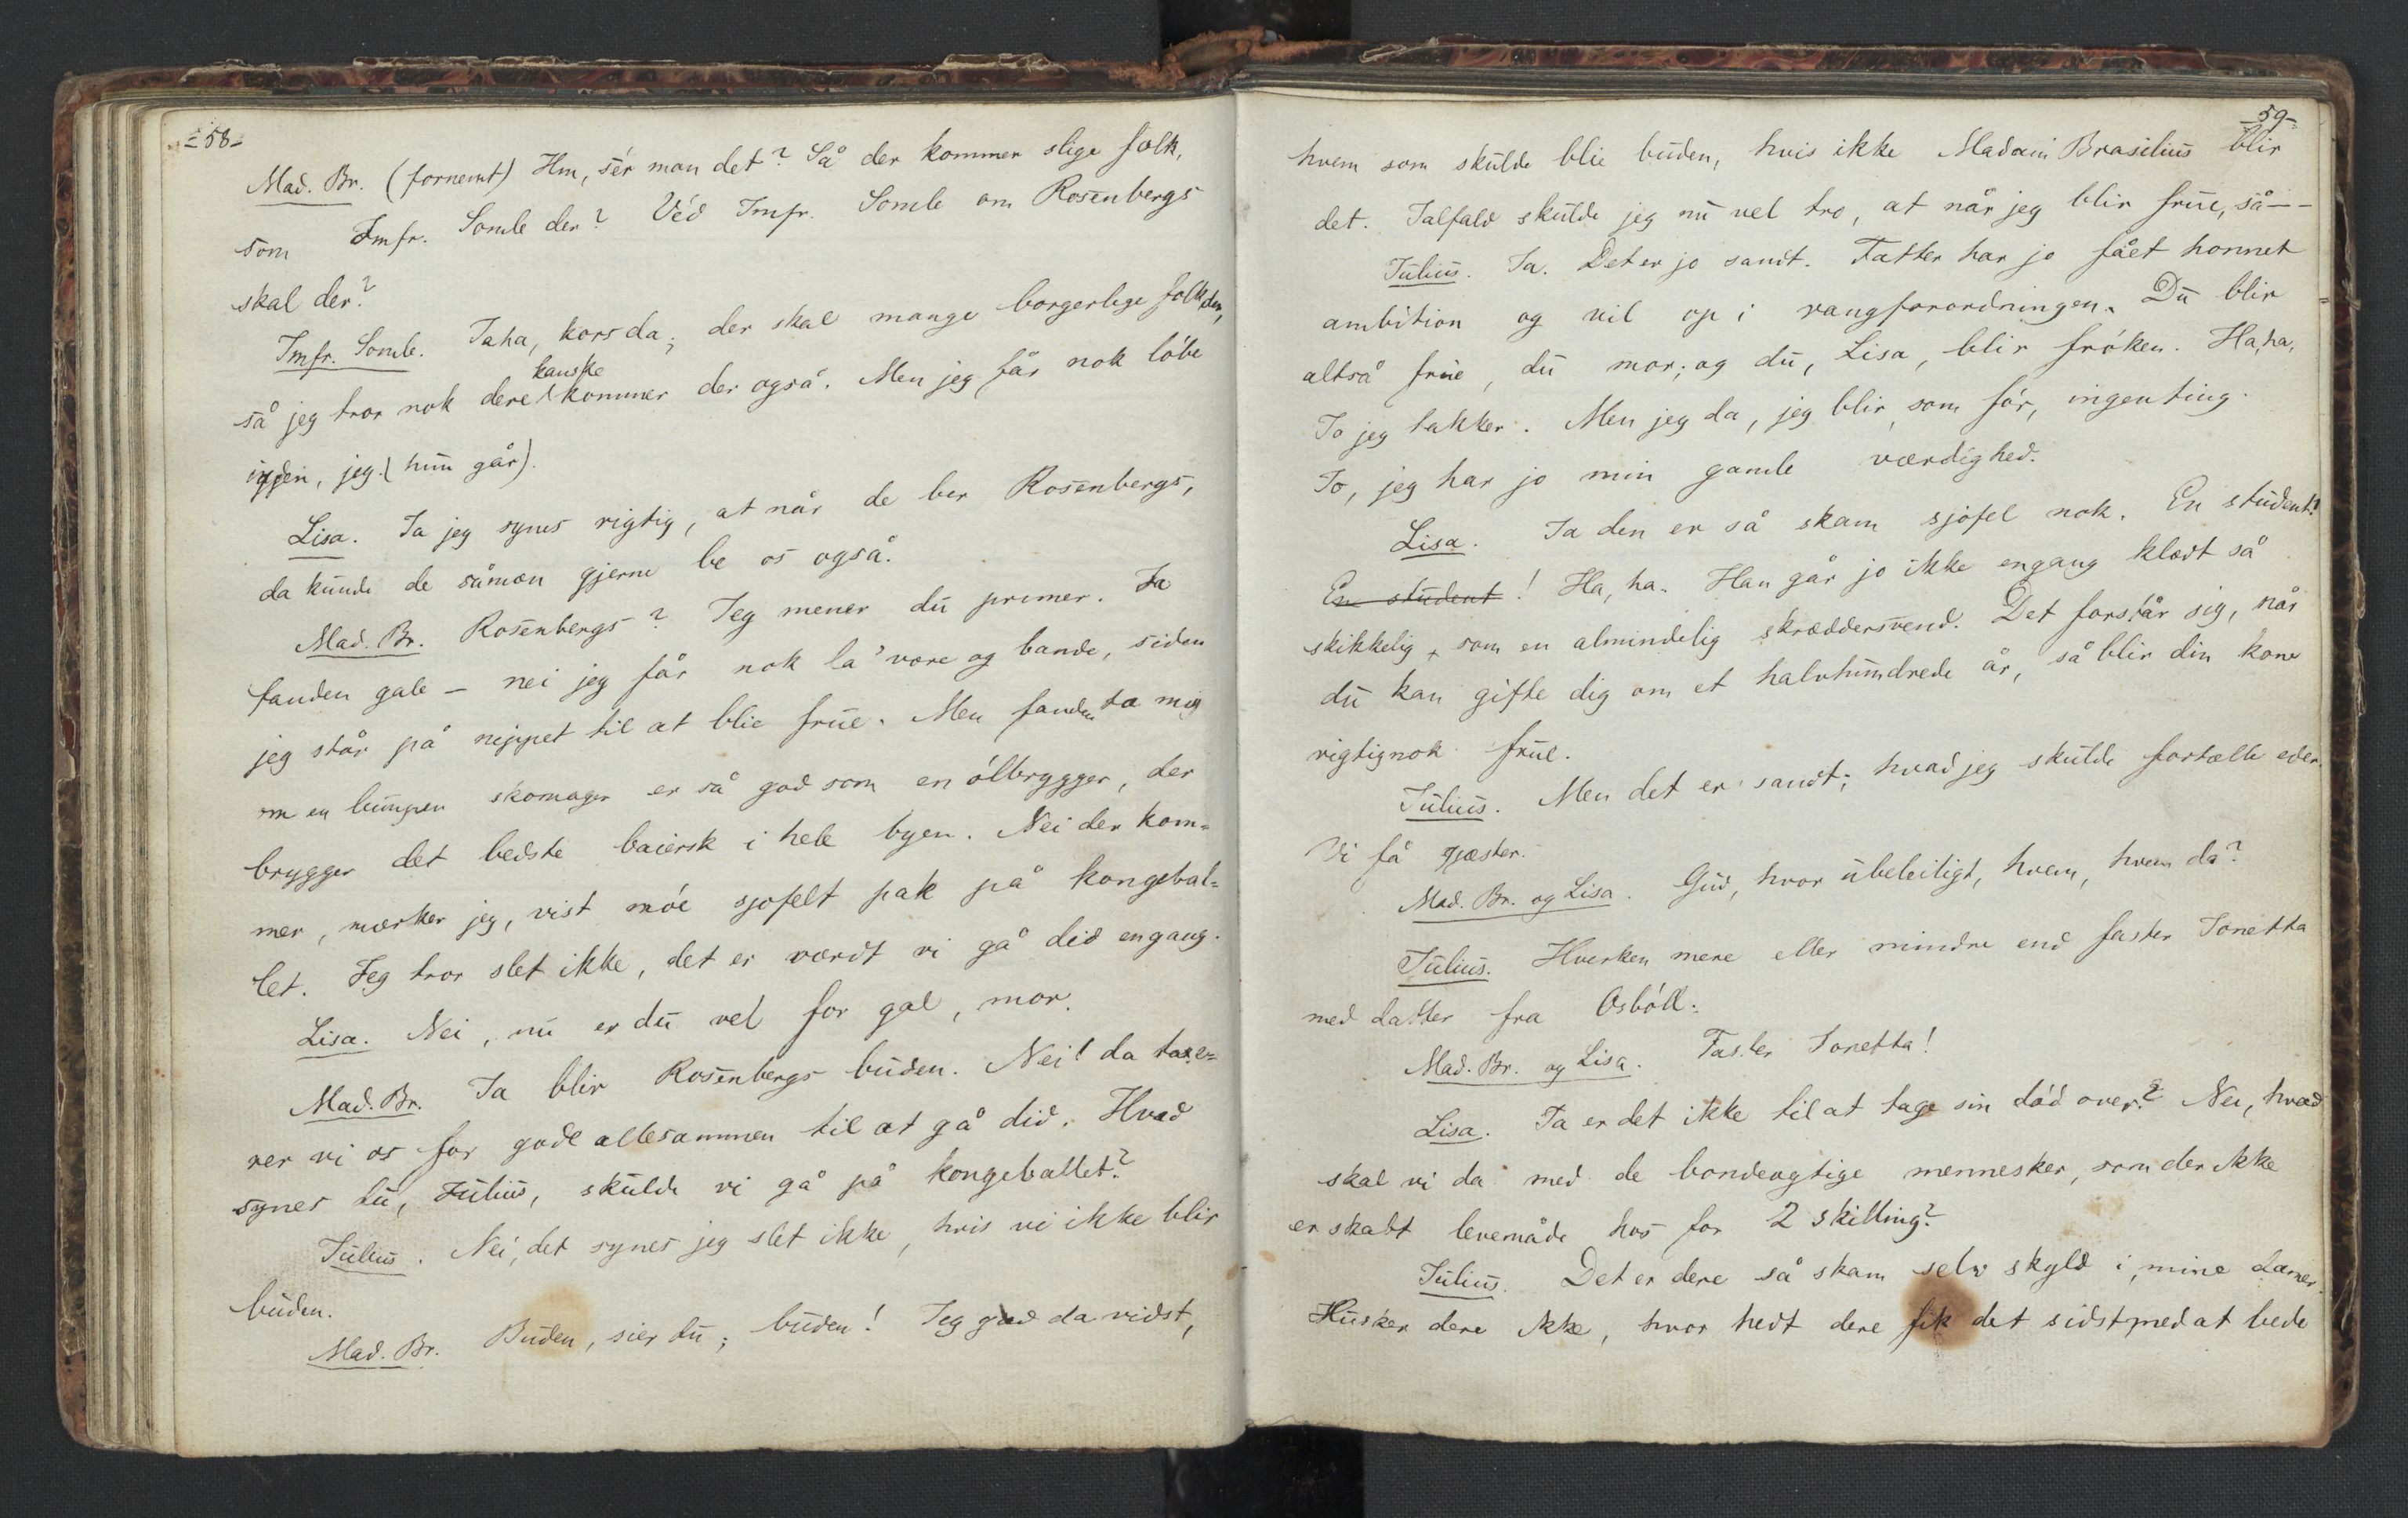 -58-
Mad. Br. (fornemt) Hm, sér man det? Så der kommer slige folk,
som Jmfr. Somle der? Véd Jmfr. Somle om Rosenbergs
skal der?
Jmfr. Somle. Jaha, kors da; der skal mange borgerlige folk der,
kanske
så jeg tror nok dere kommer der også. Men jeg får nok löbe
igjen, jeg. (hun går).
Lisa. Ja jeg synes rigtig, at når de ber Rosenbergs,
da kunde de såmæn gjerne be os også.
Mad. Br. Rosenbergs? Jeg mener du primer. Ja
fanden gale – nei jeg får nok la' være og bande, siden
jeg står på nippet til at blie frue. Men fanden ta mig
om en lumpen skomager er så god som en ölbrygger, der
brygger det bedste baiersk i hele byen. Nei der kom=
mer, mærker jeg, vist möe sjofelt pak på kongebal=
let. Jeg tror slet ikke, det er værdt vi gå did engang.
Lisa. Nei, nu er du vel for gal, mor.
Mad. Br. Ja blir Rosenbergs buden. Nei! da taxe=
rer vi os for gode allesammen til at gå did. Hvad
synes du, Julius, skulde vi gå på kongeballet?
Julius. Nei, det synes jeg slet ikke, hvis vi ikke blir
buden.
Mad. Br. Buden, sier du; buden! Jeg gad da vidst,
-59-
hvem som skulde blie buden, hvis ikke Madam Brasilius blir
det. Ialfald skulde jeg nu vel tro, at når jeg blir frue, så--
Julius. Ja. Det er jo sandt. Fatter har jo fået honnet
ambition og vil op i rangforordningen. Du blir
altså frue, du mor; og du, Lisa, blir fröken. Ha, ha,
Jo jeg takker. Men jeg da, jeg blir som för, ingenting.
Jo, jeg har jo min gamle værdighed.
Lisa. Ja den er så skam sjofel nok. En student!
En student! Ha, ha. Han går jo ikke engang klædt så
skikkelig, som en almindelig skræddersvend. Det forstår sig, når
du kan gifte dig om et halvhundrede år, så blir din kone
rigtignok frue.
Julius. Men det er sandt; hvad jeg skulde fortælle eder.
Vi få gjæster.
Mad. Br. og Lisa. Gud, hvor ubeleiligt, hvem, hvem da?
Julius. Hverken mere eller mindre end faster Tonetta
med datter fra Osböll.
Mad. Br. og Lisa. Faster Tonetta!
Lisa. Ja er det ikke til at tage sin död over? Nei, hvad
skal vi da med de bondeagtige mennesker, som der ikke
er skabt levemåde hos for 2 skilling?
Julius. Det er dere så skam selv skyld i, mine damer.
Husker dere ikke, hvor hedt dere fik det sidst med at bede